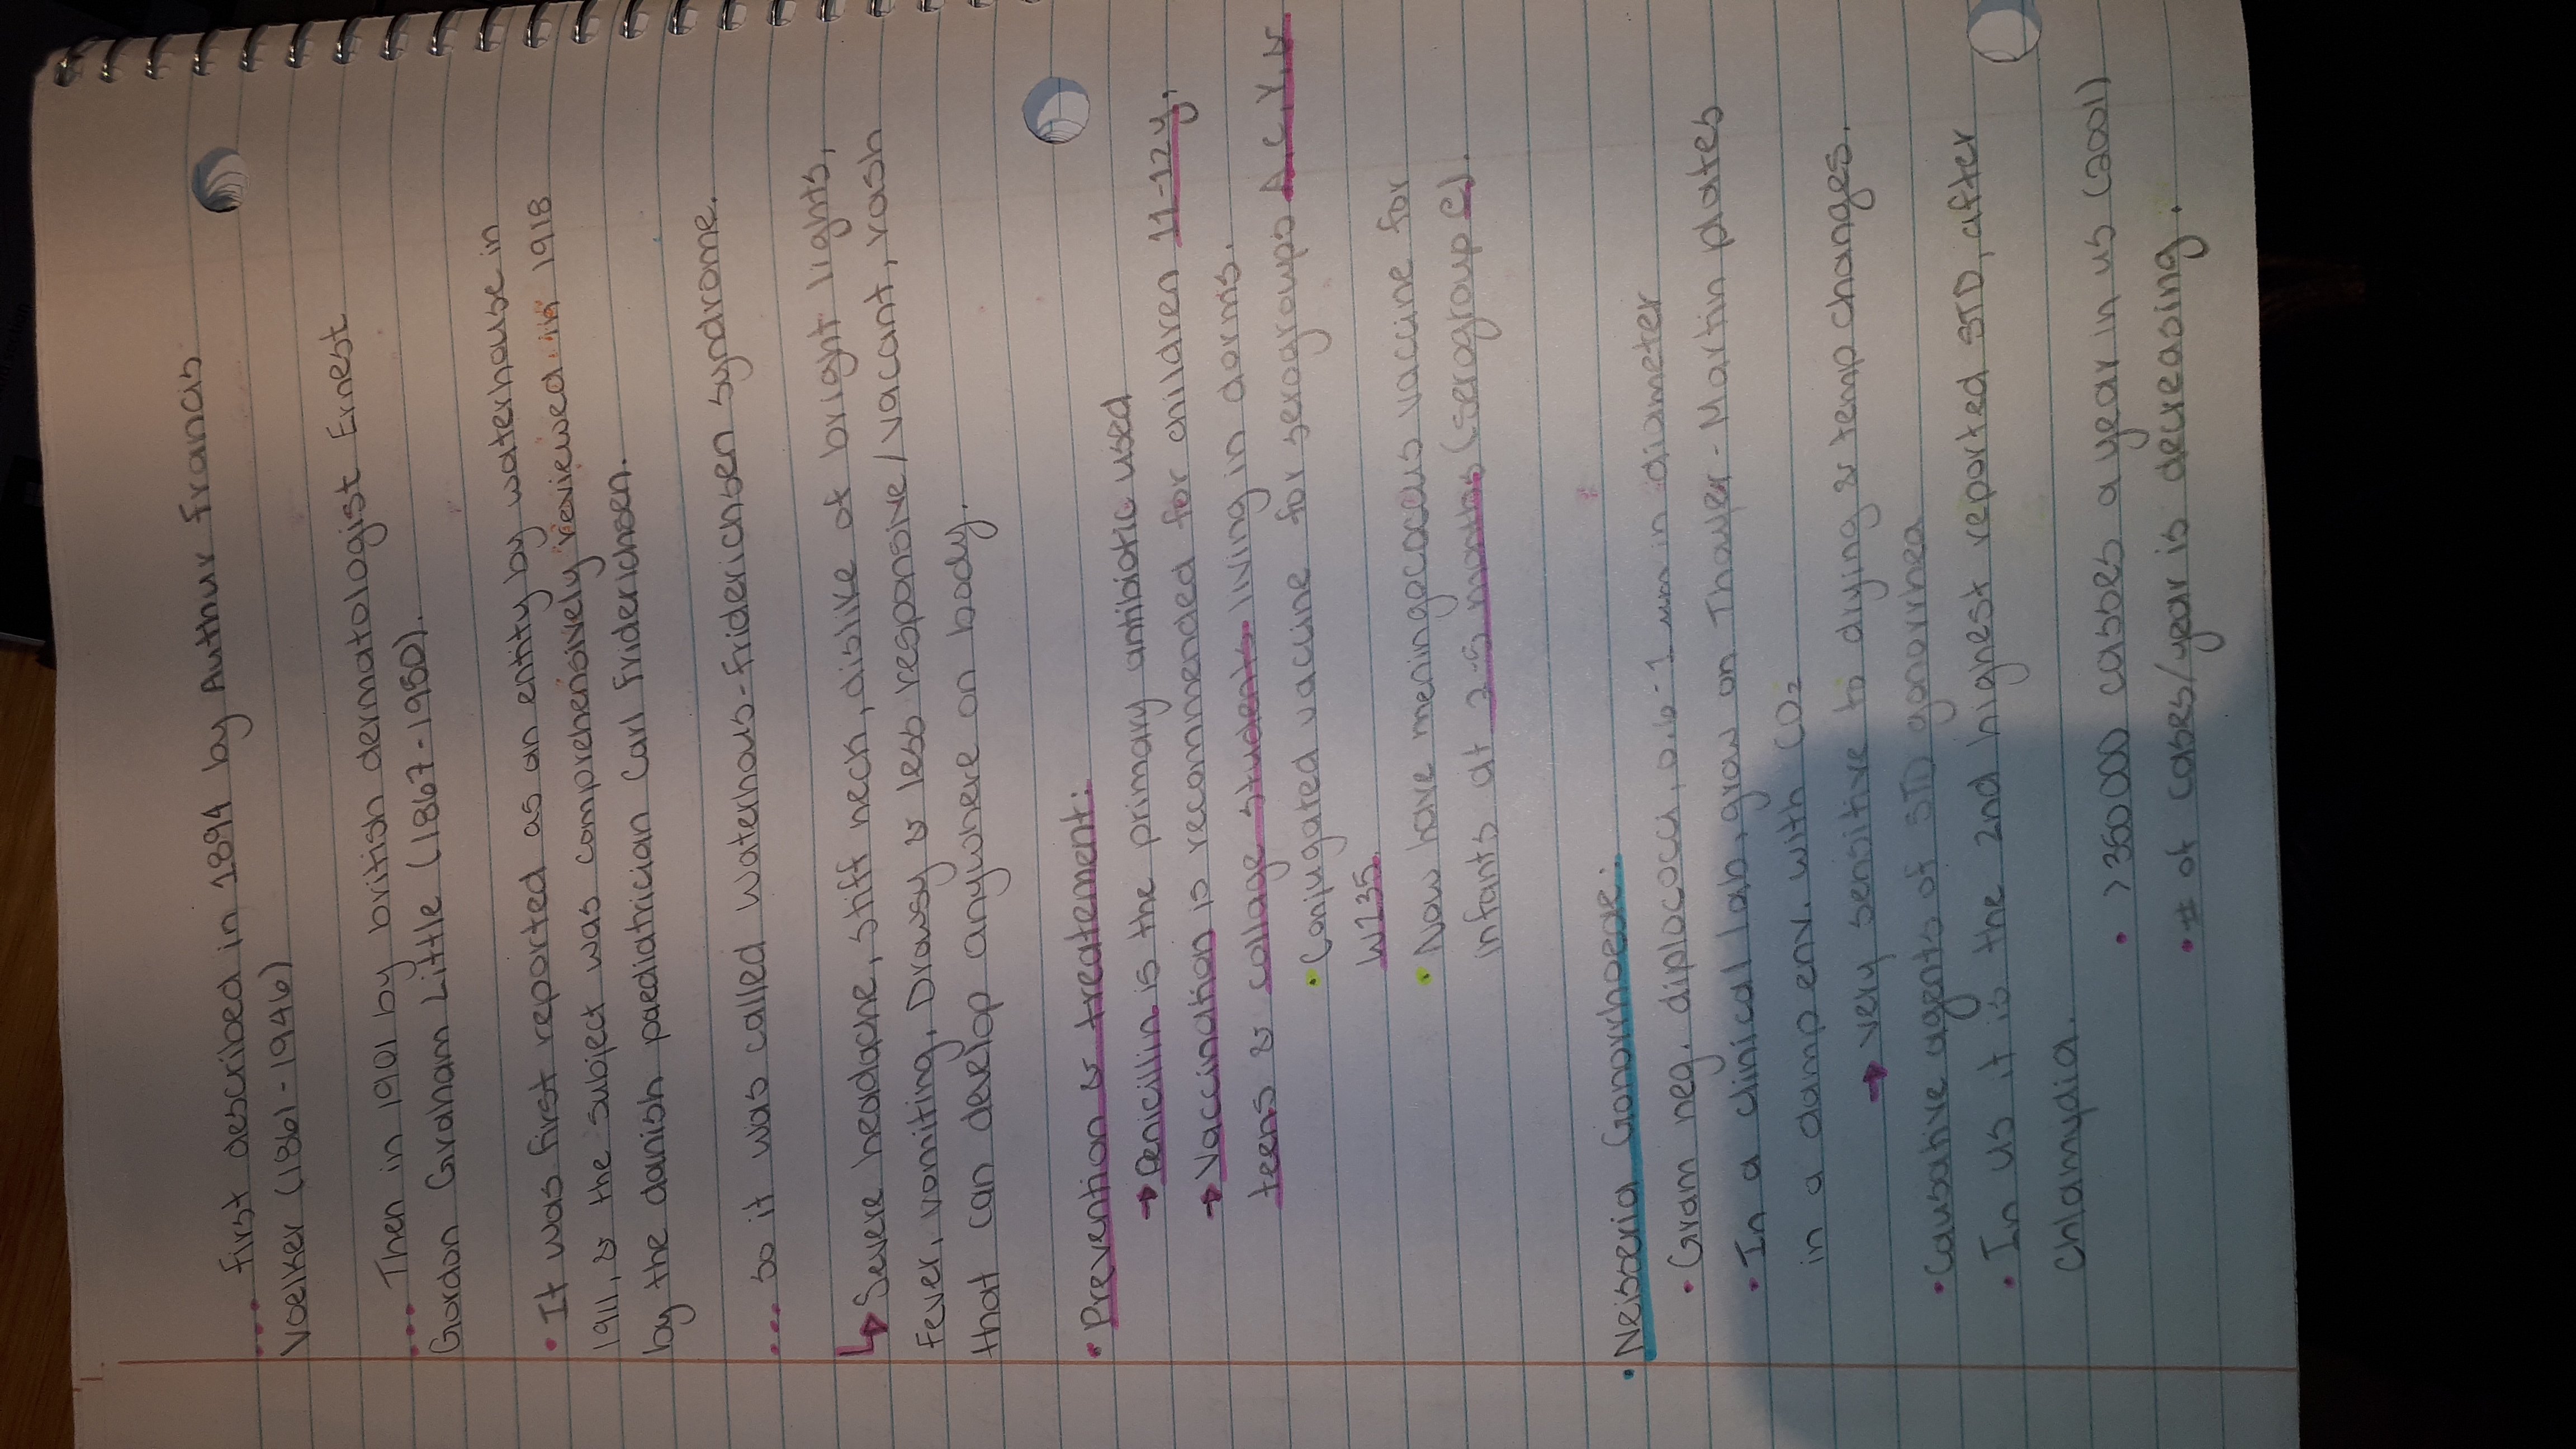 ... First described in 1894 by Authur Francis
Voelker (1861-1946)
... Then in 1901 by british dermatologist Ernest
Gordon Graham Little (1867-1950).
• It was first reported as an entity by waterhouse in
1911, & the subject was comprehensively reviewed in 1918
by the danish paediatrician Carl Friderichsen.
... so it was called waterhous-Friderichsen syndrome.
↳ Severe headache, stiff neck, dislike of bright lights,
Fever, vomiting, Drowsy & less responsive/vacant, rash
that can develop anywhere on body.
• Prevention & treatement:
→ Penicillin is the primary antibiotic used
→ Vaccination is recommended for children 11-12y,
teens & collage students living in dorms.
• Conjugated vaccine for serogroups A,C,Y, &
W135.
• Now have meningococcus vaccine for
infants at 2-5 months (serogroup C).
• Neisseria Gonorrhoeae:
• Gram neg. diplococci, 0.6-1 um in diameter
• In a clinical lab, grow on Thayer-Martin plates
in a damp env. with CO₂
→ very sensitive to drying & temp changes.
• Causative agents of STD gonorrhea
• In us it is the 2nd highest reported STD, after
Chlamydia.
• >350000 casses a year in us (2001)
• # of cases/year is decreasing.